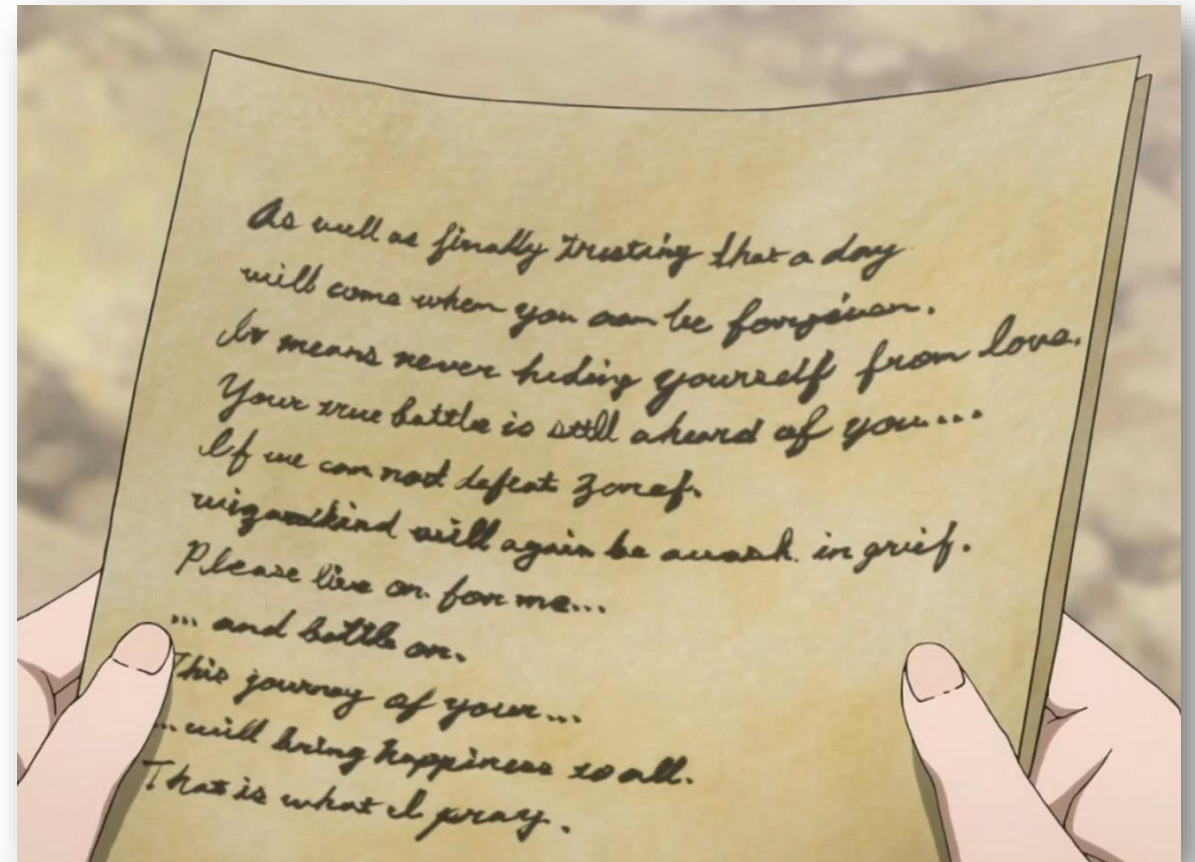 As well as finally trusting that a day
will come when you can be forgiven.
It means never hiding yourself from love.
Your true battle is still aheard of you...
If we can not defeat Zeref.
wizardkind will again be awash. in grief.
Please live on. for me...
... and battle on.
This journey of your...
... will bring happiness to all.
That is what I pray.